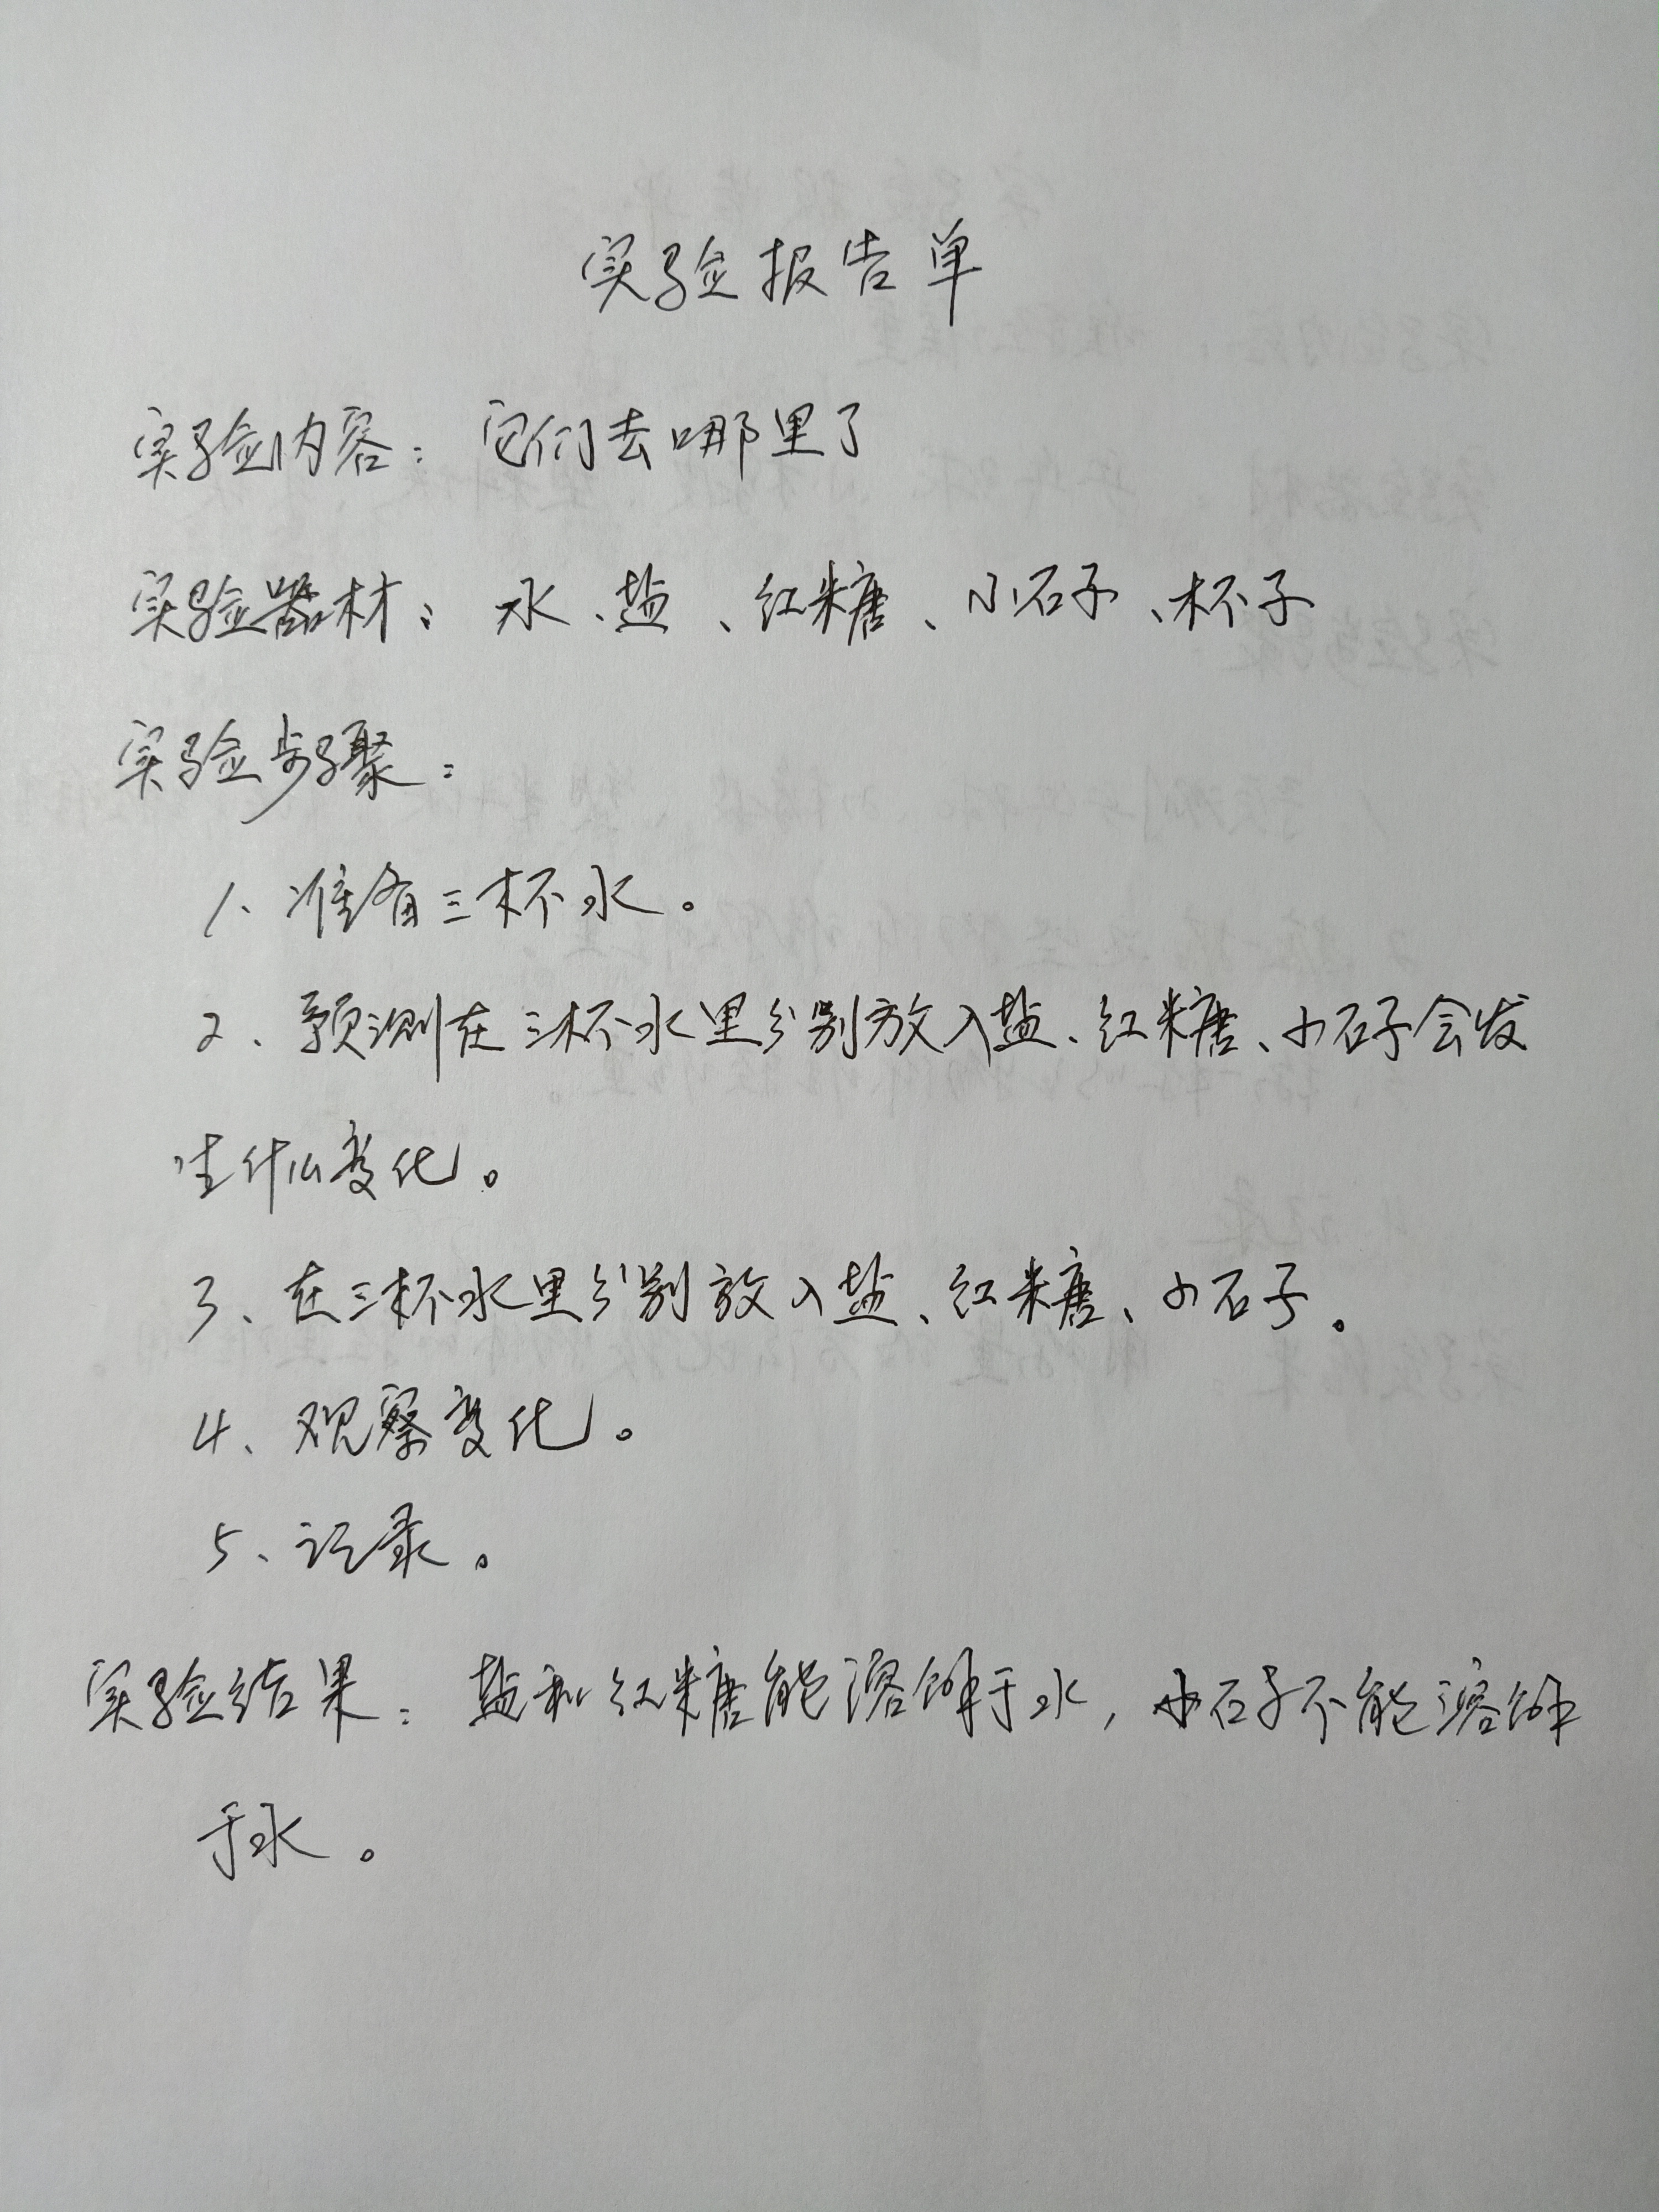 实验报告单
实验内容：它们去哪里了
实验器材：水、盐、红糖、小石子、杯子
实验步骤：
1、准备三杯水。
2、预测在三杯水里分别放入盐、红糖、小石子会发
生什么变化。
3、在三杯水里分别放入盐、红糖、小石子。
4、观察变化。
5、记录。
实验结果：盐和红糖能溶解于水，小石子不能溶解
于水。